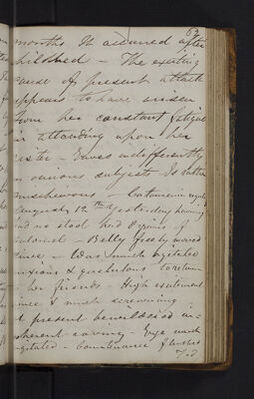 63
months It occurred after
childbed – The exciting
cause of present attack
appears to have arisen
from her constant fatigue
in attending upon her
sister – Raves indifferently
on various subjects Is rather
mischievous – Catamenia regular
August 12th Yesterday having
had no stool had 5 grains of
Calomel – Belly freely moved
since – Was much agitated
anxious & querulous to return
to her friends – High excitement
since & much screaming
At present bewildered in-
coherent raving – Eye much
agitated – Countenance flushed